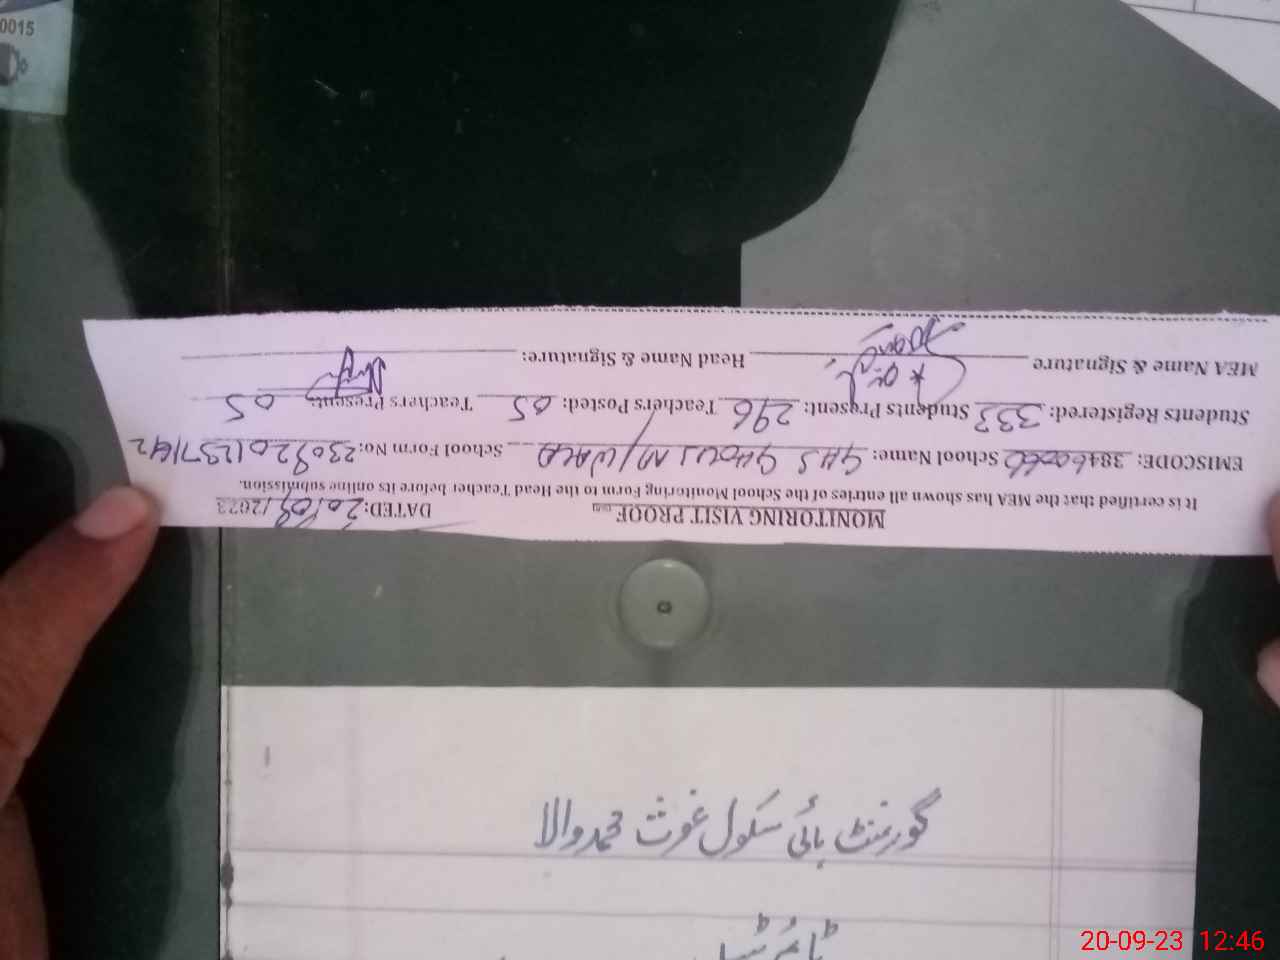 0015
MONITORING VISIT PROOF
DATED: 20/09/2023
It is certified that the MEA has shown all entries of the School Monitoring Form to the Head Teacher before its online submission.
EMISCODE: School Name: GHS GHOUS M/WALA School Form No: 23092012371142
Students Registered: 333 Students Present: 296 Teachers Posted: 05 Teachers Present: 05
MEA Name & Signature Head Name & Signature:
گورنمنٹ ہائی سکول غوث محمد والا
20-09-23 12:46